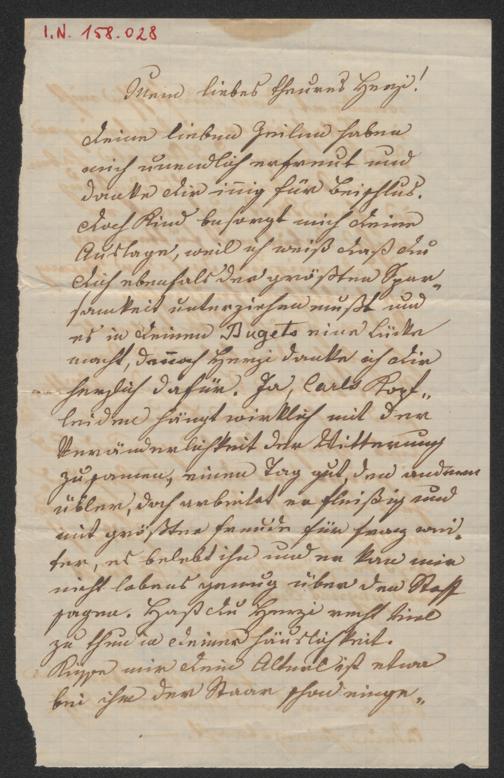 I.N. 158.028
Mein liebes theures Herzi!
Deine lieben Zeilen haben
mich unendlich erfreut und
danke dir innig für Beischlus.
doch Kind besorgt mich deine
Auslage, weil ich weiß daß du
dich ebenfals der größten Spar„
samkeit unterziehen mußt und
es in deinem Bugets eine Lücke
macht, dennoch Herzi danke ich dir
herzlich dafür. Ja, Carls Kopf„
leiden hängt wirklich mit der
Veränderlichkeit der Witterung
zusamen, einen Tag gut, den anderen
übler, doch arbeitet er fleißig und
mit größter Freude für Franz wei„
ter, es belebt ihn und er kan mir
nicht lobens genug über den Stoff
sagen. Hast du Herzi recht viel
zu thun in deiner Häuslichkeit.
mir dein ist etwa
bei ihm der Staar schon einge„